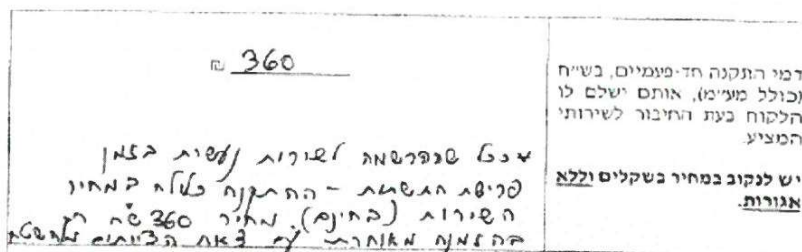 דמי התקנה חד-פעמיים, בש״ח
(כולל מע״מ), אותם ישלם לו
הלקוח בעת החיבור לשירותי
המציע.
יש לנקוב במחיר בשקלים וללא
אגורות.
₪ 360
* ככל שההרשמה לשירות נעשית בזמן
פריסת התשתית - ההתקנה כלולה במחיר
השירות (בחינם). מחיר 360 ש״ח רק
בהזמנה מאוחרת